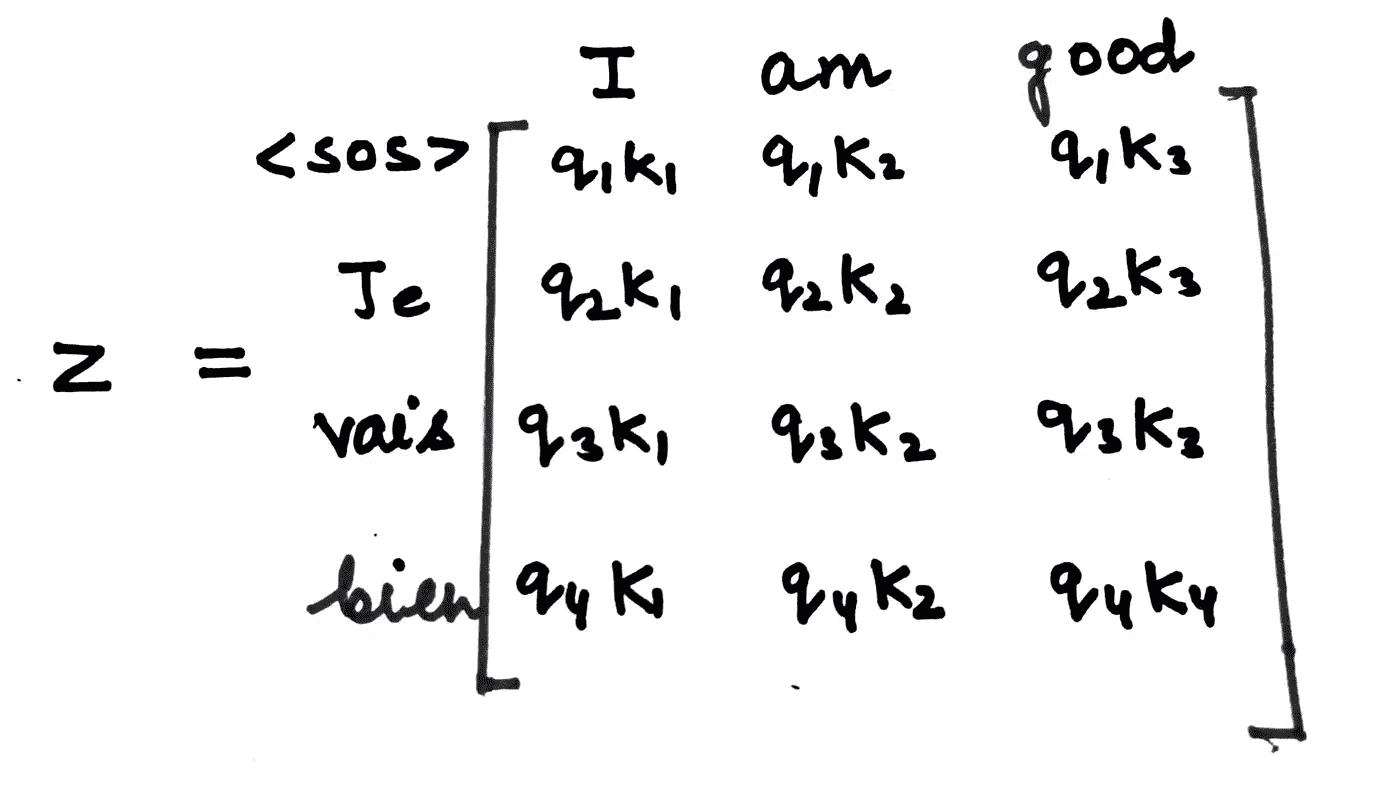 I am good
<sos> q₁k₁ q₁k₂ q₁k₃
Je q₂k₁ q₂k₂ q₂k₃
z =
vais q₃k₁ q₃k₂ q₃k₃
bien q₄k₁ q₄k₂ q₄k₄